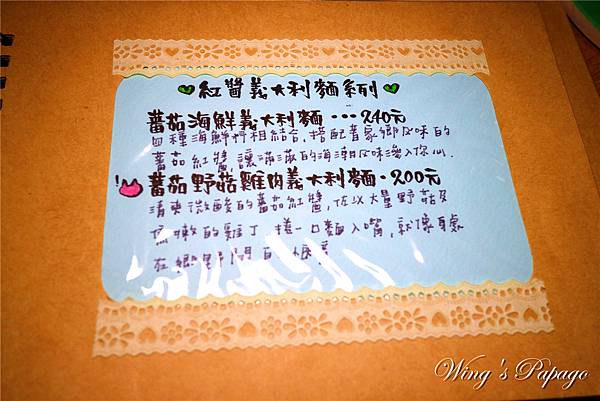 紅醬義大利麵系列
蕃茄海鮮義大利麵···240元
四種海鮮相結合,搭配著家鄉風味的
蕃茄紅醬讓滿滿的海潮風味湧入你心.
蕃茄野菇雞肉義大利麵·200元
清爽微酸的蕃茄紅醬,佐以大量野菇及
嫩的雞丁捲一口麵入嘴,就像身處
在鄉野間自
Wing's Papago